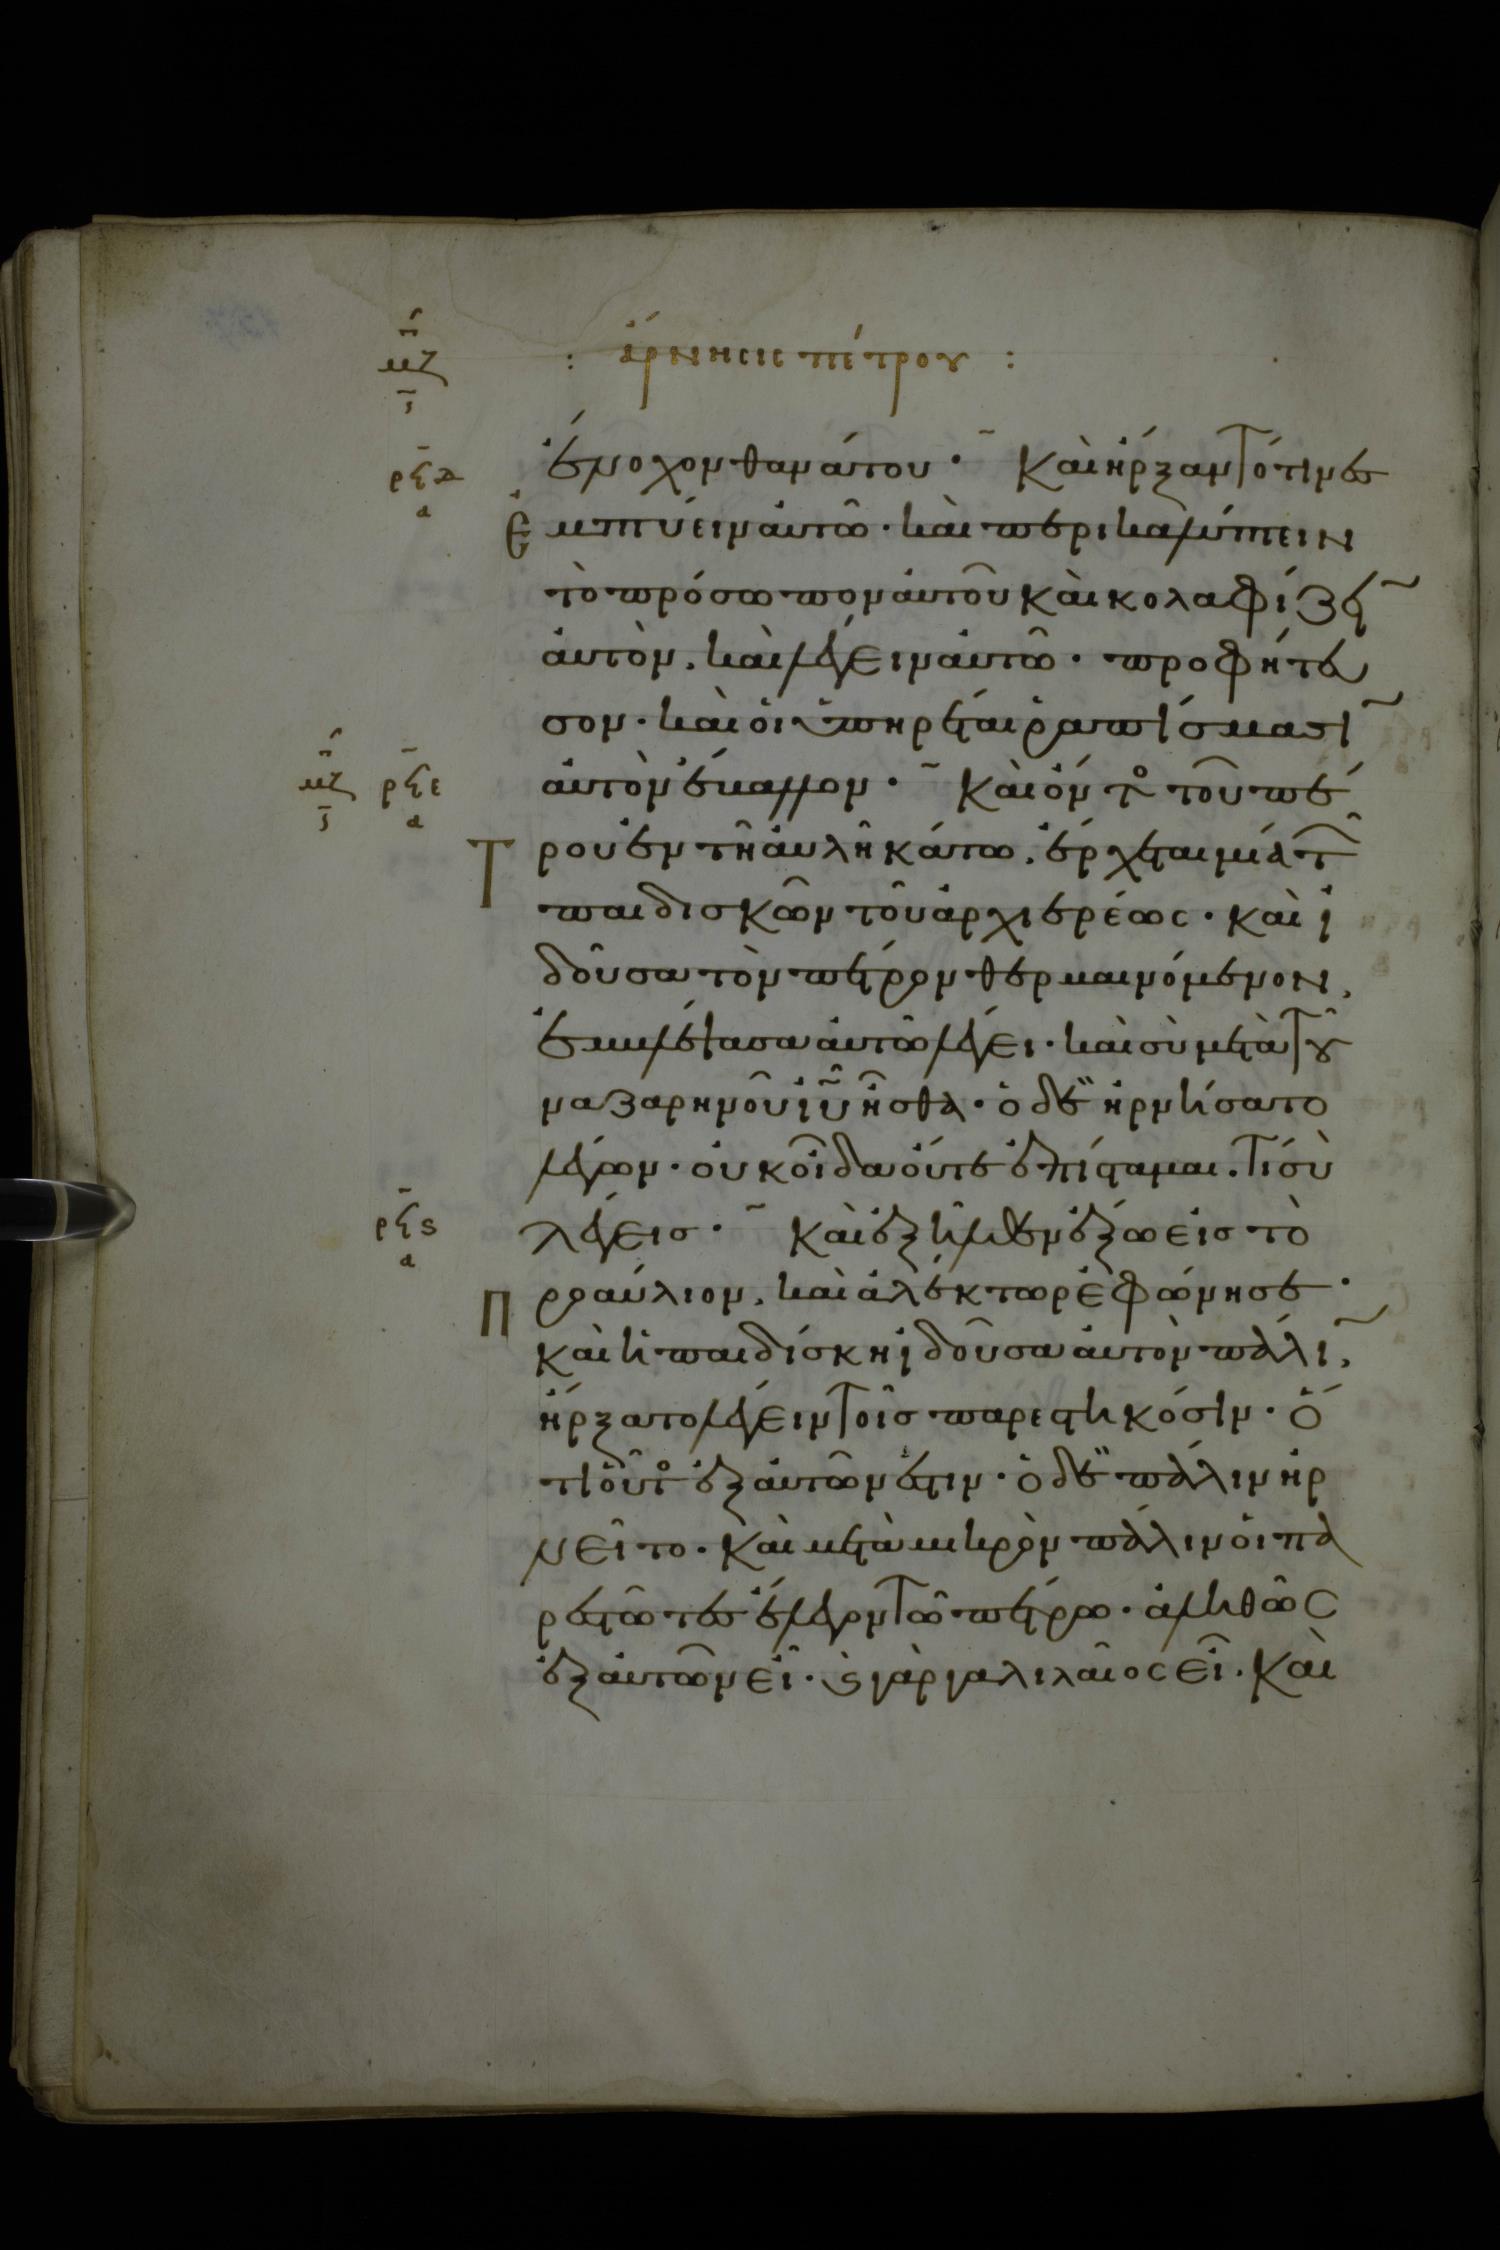 μζ
: ἄρνησις πέτρου :
ρϟδ
α
ἔνοχον θανάτου · Καὶ ἤρξαντό τινες
ἐμπτύειν αὐτῶ · καὶ περικαλύπτειν
τὸ πρόσωπον αὐτοῦ καὶ κολαφίζειν
αὐτὸν, καὶ λέγειν αὐτῶ · προφήτευ
σον · καὶ οἱ ὑπηρέται ῥαπίσμασιν
μζ ρϟε
α
αὐτὸν ἔβαλλον · Καὶ ὄντος τοῦ πέ
τρου ἐν τῆ αὐλῆ κάτω, ἔρχεται μία τῶν
παιδισκῶν τοῦ ἀρχιερέως · καὶ ἰ
δοῦσα τὸν πέτρον θερμαινόμενον,
ἐμβλέψασα αὐτῶ λέγει · καὶ σὺ μετὰ τοῦ
ναζαρηνοῦ ἰῦ ἦσθα · ὁ δὲ ἠρνήσατο
λέγων · οὐκ οἶδα οὔτε ἐπίσταμαι. τί σὺ
ρϟς
α
λέγεις · Καὶ ἐξῆλθεν ἔξω εἰς τὸ
προαύλιον, καὶ ἀλέκτωρ ἐφώνησε ·
καὶ ἡ παιδίσκη ἰδοῦσα αὐτὸν πάλιν,
ἤρξατο λέγειν τοῖς παρεστηκόσιν · ὅ
τι οὗτος ἐξ αὐτῶν ἐστιν · ὁ δὲ πάλιν ἠρ
νεῖτο · Καὶ μετὰ μικρὸν πάλιν οἱ πα
ρεστῶτες ἔλεγον τῶ πέτρω · ἀληθῶς
ἐξ αὐτῶν εἶ · καὶ γὰρ γαλιλαῖος εἶ. Καὶ